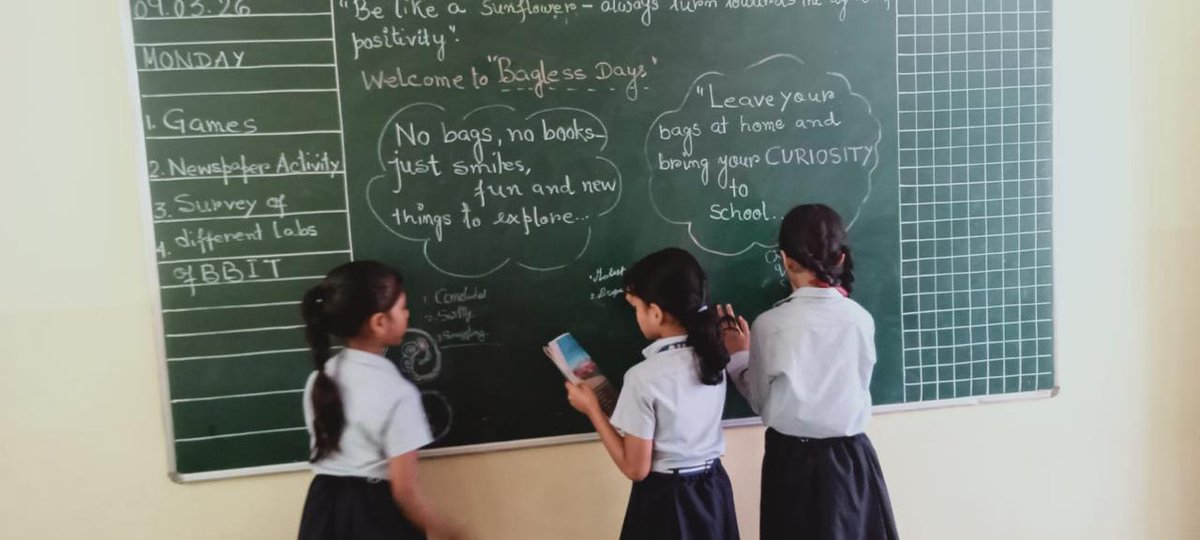 09.03.26
MONDAY
1. Games
2. Newspaper Activity
3. Survey of
4. different Labs
of BBIT
"Be like a Sunflower - always turn towards the
positivity".
Welcome to "Bagless Days"
No bags, no books-
just smiles,
fun and new
things to explore...
"Leave your
bags at home and
bring your CURIOSITY
to
school..
1.
2.
3.